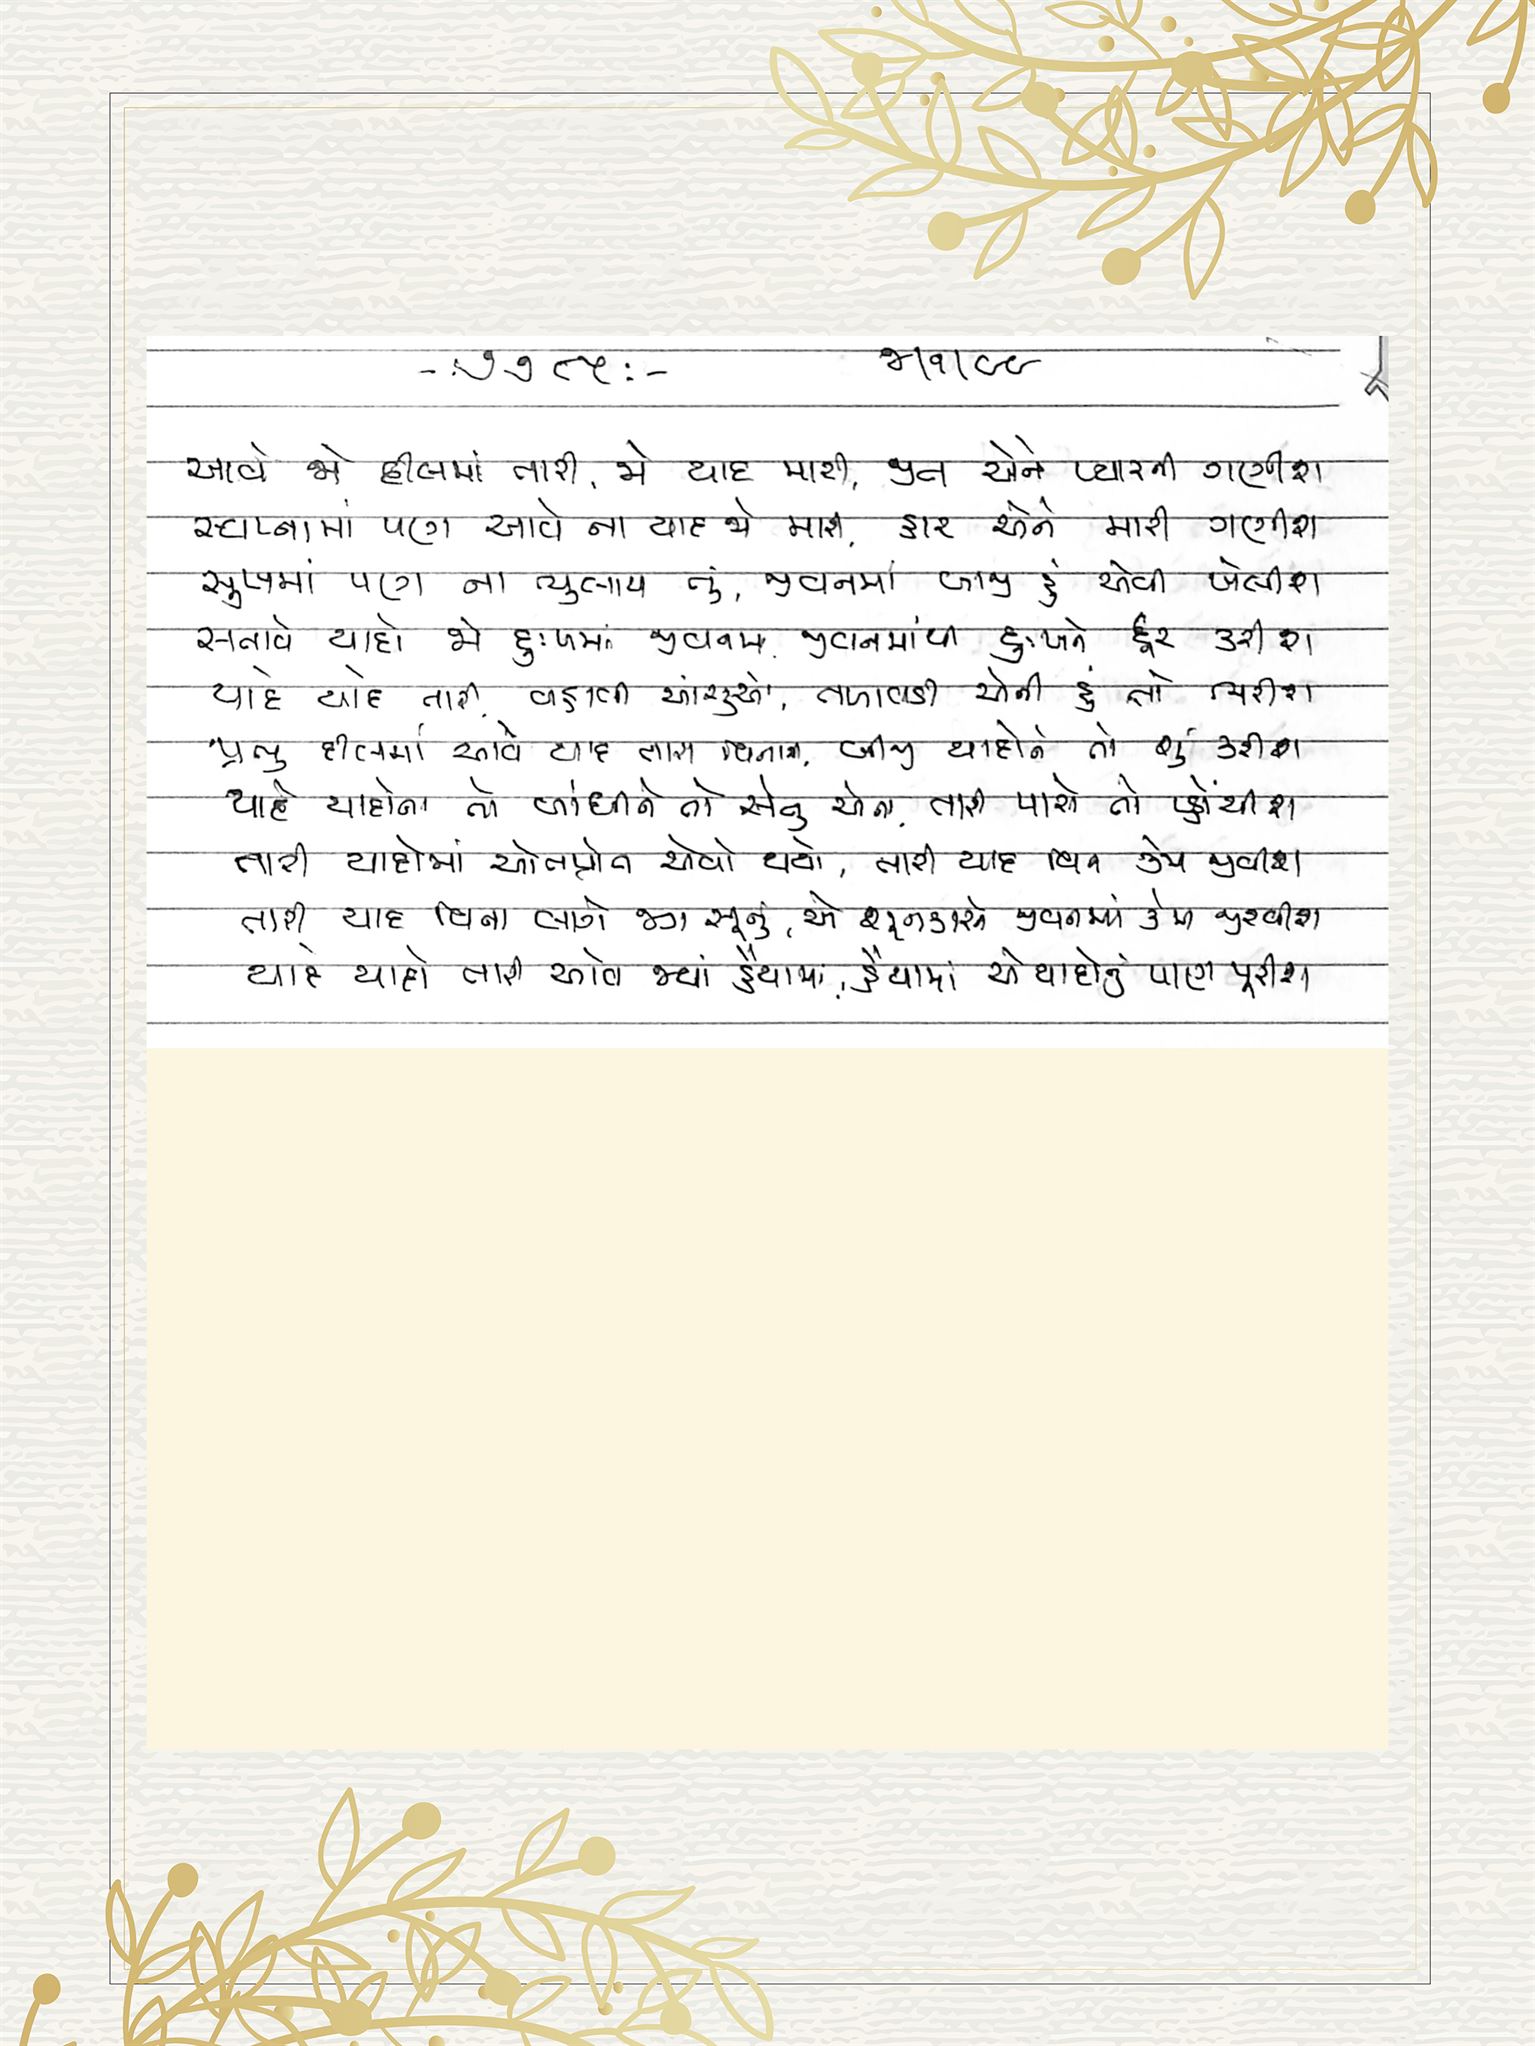 આવે જો દીલમાં તારી, જો યાદ મારી, જીત એને પ્યારની ગણીશ
સ્વપ્નામાં પણ આવે ના યાદ જો મારી, હાર એને મારી ગણીશ
સુખમાં પણ ના ભુલાય તું, જીવનમાં બાજી હું એવી ખેલીશ
સતાવે યાદો જો દુઃખમાં જીવનમાં, જીવનમાંથી દુઃખને દૂર કરીશ
યાદે યાદે તારી, વહાવી આંસુઓ, તળાવડી એની હું તો ભરીશ
પ્રભુ દીલમાં આવે યાદ તારા વિનાની, બીજી યાદોને તો શું કરીશ
યાદે યાદોના તો બાંધીને તો સેતુ એના, તારી પાસે તો પ્હોંચીશ
તારી યાદોમાં ઓતપ્રોત એવો થયો, તારી યાદ વિના કેમ જીવીશ
તારી યાદ વિના લાગે જગ સૂનું, એ સૂનકારને જીવનમાં કેમ જીરવીશ
યાદે યાદો તારી આવે જ્યાં હૈયામાં, હૈયામાં એ યાદોનું પાણ પૂરીશ